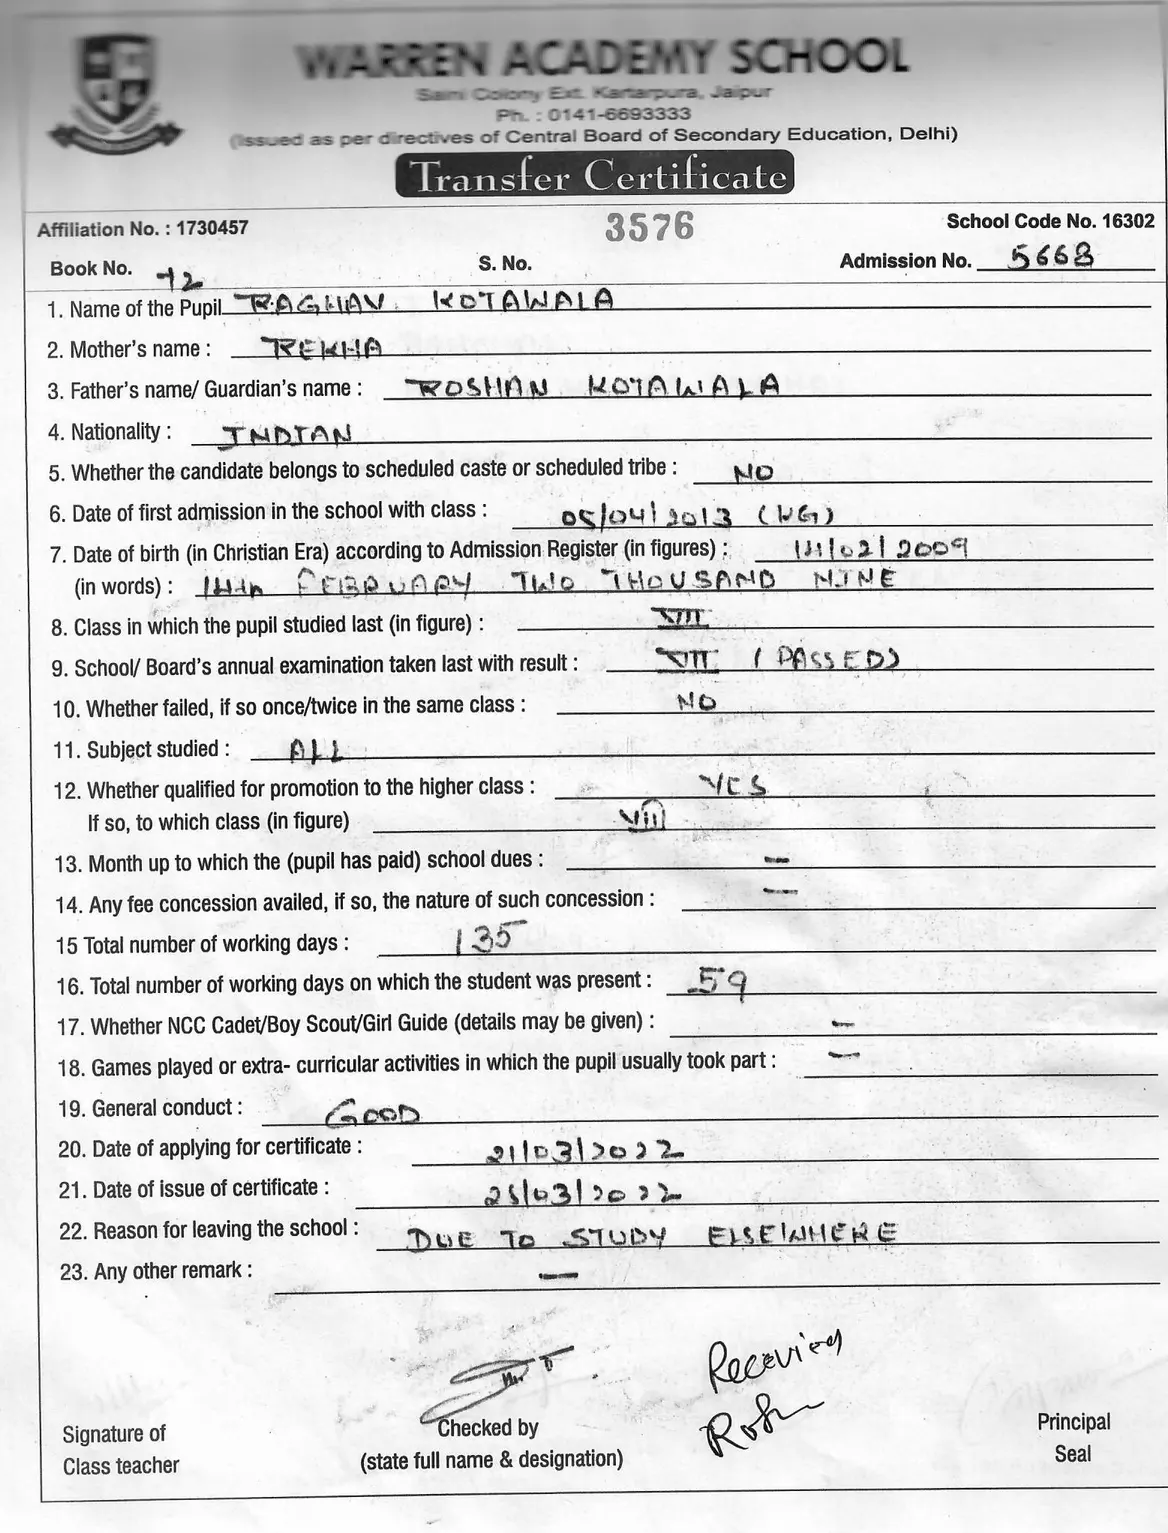 WARREN ACADEMY SCHOOL
Saini Colony Ext. Kartarpura, Jaipur
Ph. : 0141-6693333
(Issued as per directives of Central Board of Secondary Education, Delhi)
Transfer Certificate
Affiliation No. : 1730457 3576 School Code No. 16302
Book No. 72 S. No. Admission No. 5668
1. Name of the Pupil RAGHAV KOTAWALA
2. Mother's name : REKHA
3. Father's name/ Guardian's name : ROSHAN KOTAWALA
4. Nationality : INDIAN
5. Whether the candidate belongs to scheduled caste or scheduled tribe : NO
6. Date of first admission in the school with class : 05/04/2013 (KG)
7. Date of birth (in Christian Era) according to Admission Register (in figures) : 14/02/2009
(in words) : 14th FEBRUARY TWO THOUSAND NINE
8. Class in which the pupil studied last (in figure) : VIII
9. School/ Board's annual examination taken last with result : VII (PASSED)
10. Whether failed, if so once/twice in the same class : NO
11. Subject studied : ALL
12. Whether qualified for promotion to the higher class : YES
If so, to which class (in figure) VIII
13. Month up to which the (pupil has paid) school dues : —
14. Any fee concession availed, if so, the nature of such concession : —
15 Total number of working days : 135
16. Total number of working days on which the student was present : 59
17. Whether NCC Cadet/Boy Scout/Girl Guide (details may be given) : —
18. Games played or extra- curricular activities in which the pupil usually took part : —
19. General conduct : GOOD
20. Date of applying for certificate : 21/03/2022
21. Date of issue of certificate : 25/03/2022
22. Reason for leaving the school : DUE TO STUDY ELSEWHERE
23. Any other remark : —
Receiving
Signature of
Class teacher
Checked by
(state full name & designation)
Principal
Seal